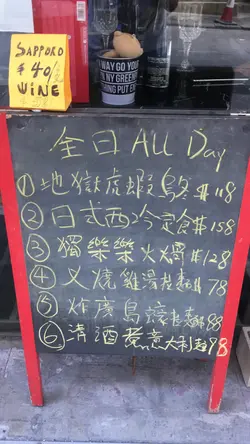 SAPPORO
$40/
WiNE
WAY GO YOUR
全日 ALL Day
① 地獄虎蝦烏冬 $118
② 日式西冷定食 $158
③ 獨樂樂火焗 $128
④ 叉燒雞湯拉麵 $78
⑤ 炸廣島蠔拉麵 $88
⑥ 清酒煮意大利麵 98